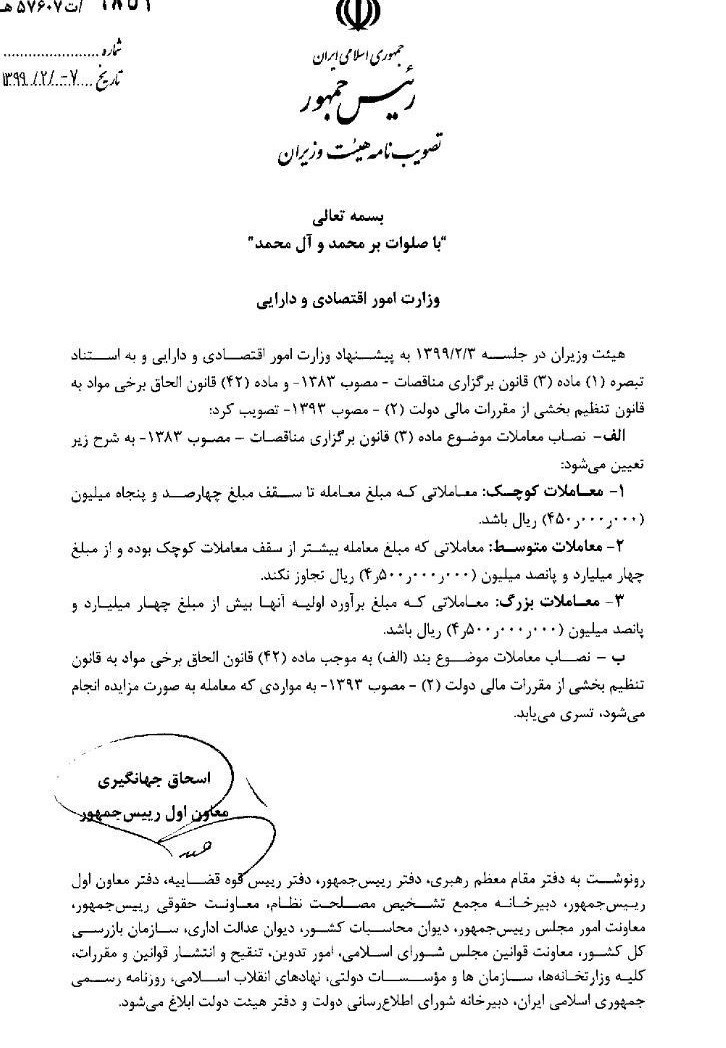 /ت۵۷۶۰۷هـ
شماره
تاریخ ۱۳۹۹/۲/۰۷
جمهوری اسلامی ایران
رئیس جمهور
تصویب نامه هیئت وزیران
بسمه تعالی
"با صلوات بر محمد و آل محمد"
وزارت امور اقتصادی و دارایی
هیئت وزیران در جلسه ۱۳۹۹/۲/۳ به پیشنهاد وزارت امور اقتصادی و دارایی و به استناد
تبصره (۱) ماده (۳) قانون برگزاری مناقصات – مصوب ۱۳۸۳- و ماده (۴۲) قانون الحاق برخی مواد به
قانون تنظیم بخشی از مقررات مالی دولت (۲) – مصوب ۱۳۹۳- تصویب کرد:
الف- نصاب معاملات موضوع ماده (۳) قانون برگزاری مناقصات – مصوب ۱۳۸۳- به شرح زیر
تعیین می‌شود:
۱- معاملات کوچک: معاملاتی که مبلغ معامله تا سقف مبلغ چهارصد و پنجاه میلیون
(۴۵۰ر۰۰۰ر۰۰۰) ریال باشد.
۲- معاملات متوسط: معاملاتی که مبلغ معامله بیشتر از سقف معاملات کوچک بوده و از مبلغ
چهار میلیارد و پانصد میلیون (۴ر۵۰۰ر۰۰۰ر۰۰۰) ریال تجاوز نکند.
۳- معاملات بزرگ: معاملاتی که مبلغ برآورد اولیه آنها بیش از مبلغ چهار میلیارد و
پانصد میلیون (۴ر۵۰۰ر۰۰۰ر۰۰۰) ریال باشد.
ب – نصاب معاملات موضوع بند (الف) به موجب ماده (۴۲) قانون الحاق برخی مواد به قانون
تنظیم بخشی از مقررات مالی دولت (۲) – مصوب ۱۳۹۳- به مواردی که معامله به صورت مزایده انجام
می‌شود، تسری می‌یابد.
اسحاق جهانگیری
معاون اول رییس‌جمهور
رونوشت به دفتر مقام معظم رهبری، دفتر رییس‌جمهور، دفتر رییس قوه قضاییه، دفتر معاون اول
رییس‌جمهور، دبیرخانه مجمع تشخیص مصلحت نظام، معاونت حقوقی رییس‌جمهور،
معاونت امور مجلس رییس‌جمهور، دیوان محاسبات کشور، دیوان عدالت اداری، سازمان بازرسی
کل کشور، معاونت قوانین مجلس شورای اسلامی، امور تدوین، تنقیح و انتشار قوانین و مقررات،
کلیه وزارتخانه‌ها، سازمان ها و مؤسسات دولتی، نهادهای انقلاب اسلامی، روزنامه رسمی
جمهوری اسلامی ایران، دبیرخانه شورای اطلاع‌رسانی دولت و دفتر هیئت دولت ابلاغ می‌شود.